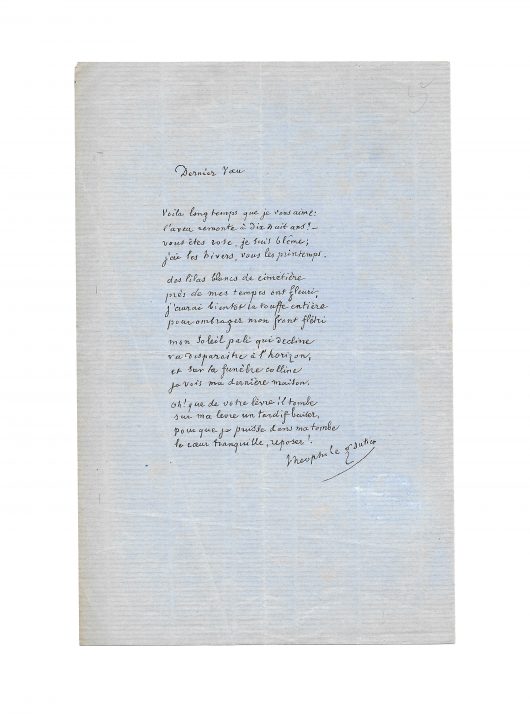 Dernier Vœu
Voilà longtemps que je vous aime:
l'aveu remonte à dix huit ans! –
vous êtes rose, je suis blême;
j'ai les hivers, vous les printemps.
des lilas blancs de cimetière
près de mes tempes ont fleuri,
j'aurai bientôt la touffe entière
pour ombrager mon front flétri
mon soleil pâli qui décline
va disparaître à l'horizon,
et sur la funèbre colline
je vois ma dernière maison.
oh! que de votre lèvre il tombe
sur ma lèvre un tardif baiser,
pour que je puisse dans ma tombe
le cœur tranquille, reposer!
Théophile Gautier